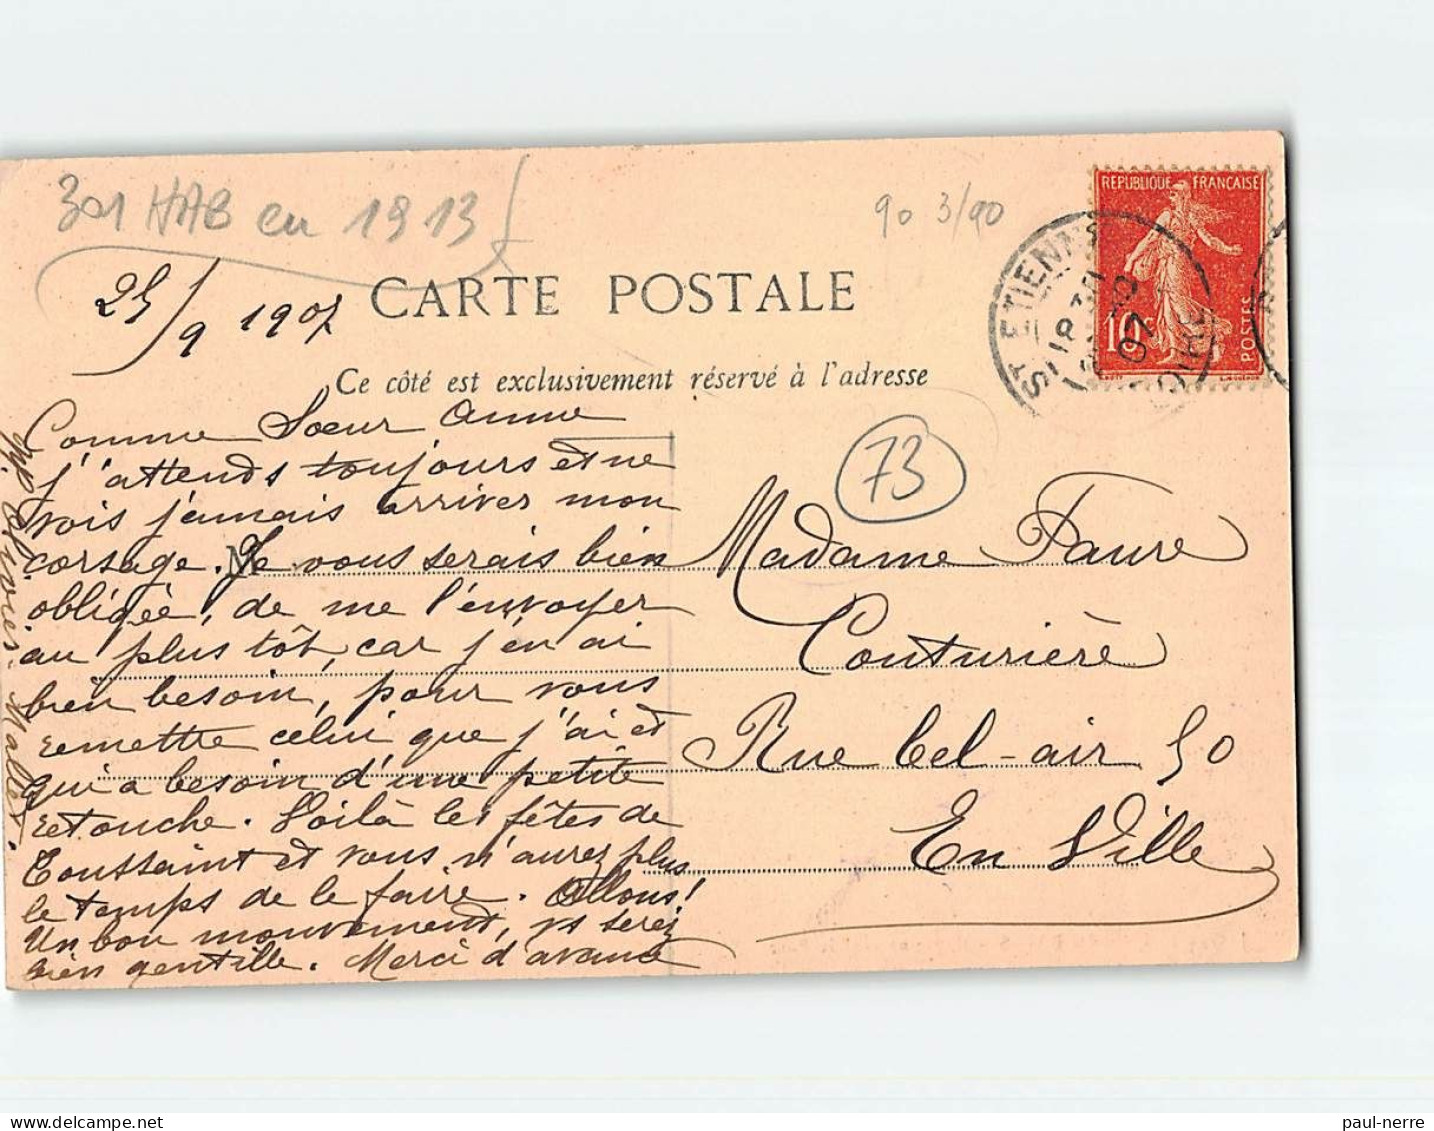 301 HAB en 1913
90 3/90
RÉPUBLIQUE FRANÇAISE
10c
POSTES
ST ETIENNE
LOIRE
18 30
07
25/9 1907
CARTE POSTALE
Ce côté est exclusivement réservé à l'adresse
73
Comme Sœur Anne
j'attends toujours et ne
vois jamais arriver mon
corsage. Je vous serais bien
obligée, de me l'envoyer
au plus tôt, car j'en ai
bien besoin, pour vous
remettre celui que j'ai et
qui a besoin d'une petite
retouche. Voilà les fêtes de
Toussaint et vous n'aurez plus
le temps de le faire. Allons!
Un bon mouvement, vs serez
bien gentille. Merci d'avance
Madame Faure
Couturière
Rue bel-air 50
En Ville
paul-nerre